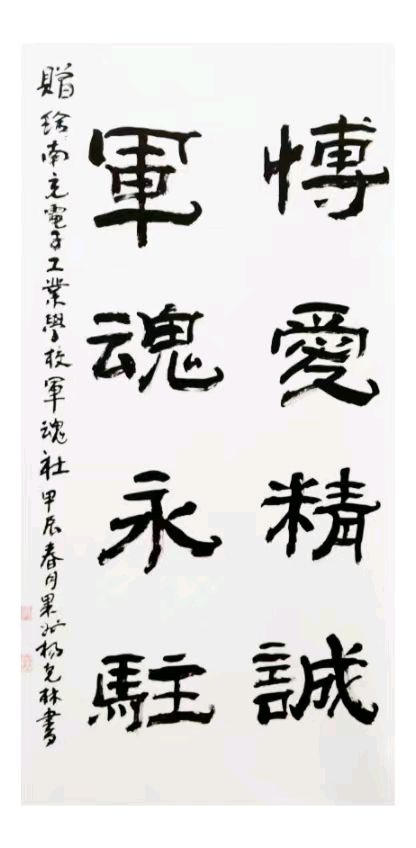 愽愛精誠
軍魂永駐
贈給南充電子工業學校軍魂社甲辰春月果州楊克林書